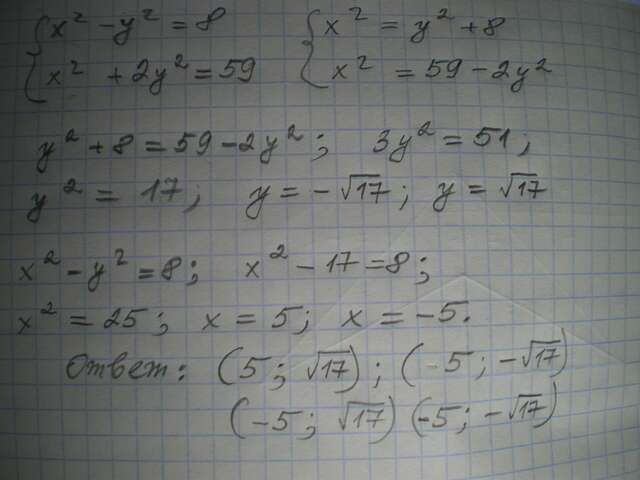 { x² - y² = 8 { x² = y² + 8
{ x² + 2y² = 59 { x² = 59 - 2y²
y² + 8 = 59 - 2y²; 3y² = 51;
y² = 17; y = -√17; y = √17
x² - y² = 8; x² - 17 = 8;
x² = 25; x = 5; x = -5.
Ответ: (5; √17); (-5; -√17)
(-5; √17) (-5; -√17)